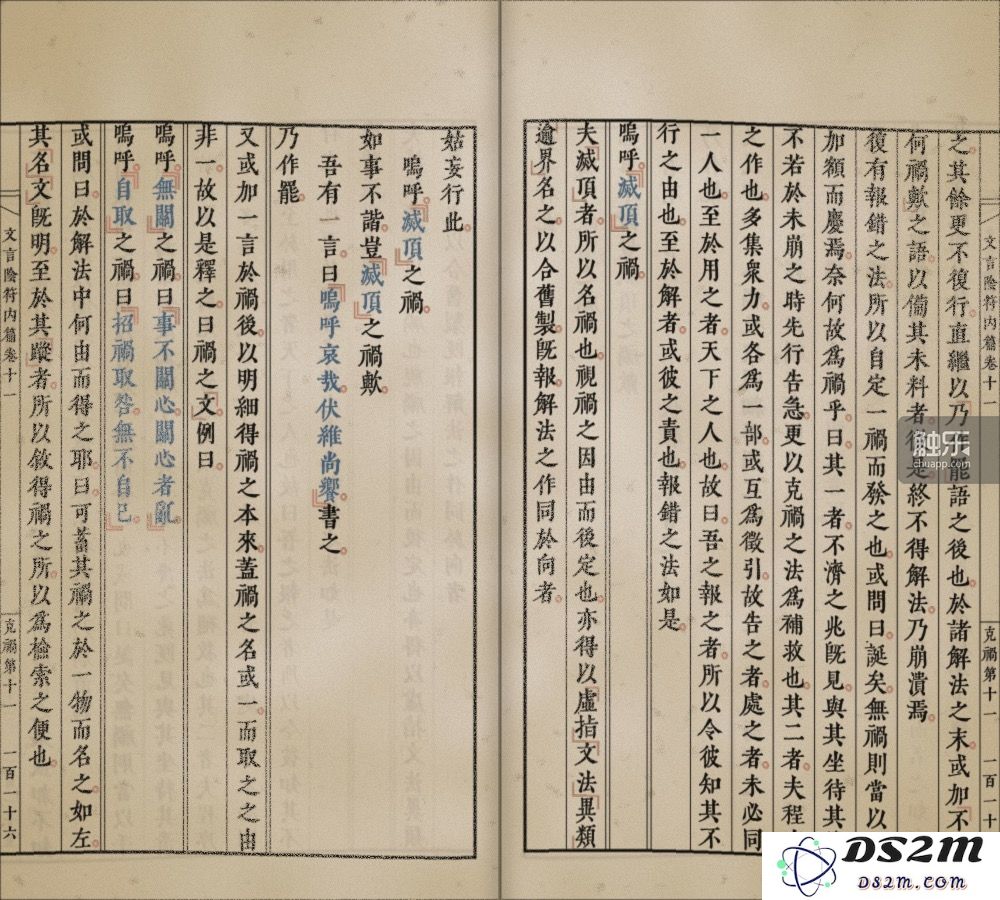 之。其餘更不復行。直繼以乃作罷語之後也。於諸解法之末。或加不
何禍歟之語。以備其未料者。
終不得解法。乃崩潰焉。
復有報錯之法。所以自定一禍而發之也。或問曰。誕矣。無禍則當以
加額而慶焉。奈何故爲禍乎。曰。其一者。不濟之兆既見。與其坐待其
不若於未崩之時先行告急。更以克禍之法爲補救也。其二者。夫程
之作也。多集衆力。或各爲一部。或互爲徵引。故告之者。處之者。未必同
一人也。至於用之者。天下之人也。故曰。吾之報之者。所以令彼知其不
行之由也。至於解者。或彼之責也。報錯之法如是。
嗚呼。『滅頂』之禍。
夫滅頂者。所以名禍也。視禍之因由而後定也。亦得以虛指文法異類
逾界名之。以合舊製。既報。解法之作同於向者。
姑妄行此。
嗚呼。『滅頂』之禍。
如事不諧。豈『滅頂』之禍歟。
吾有一言。曰『嗚呼哀哉。伏維尚饗』書之。
乃作罷。
又或加一言於禍後。以明細得禍之本來。蓋禍之名或一。而取之之由
非一。故以是釋之。曰禍之文。例曰。
嗚呼。『無關』之禍。曰『事不關心。關心者亂』。
嗚呼。『自取』之禍。曰『招禍取咎。無不自己』。
或問曰。於解法中何由而得之耶。曰。可蓄其禍之於一物而名之。如左。
其名文既明。至於其蹤者。所以敘得禍之所。以爲檢索之便也。
文言陰符內篇卷十一
克禍第十一
一百一十
文言陰符內篇卷十一
克禍第十一
一百一十六
触乐
chuapp.com
DS2M
DS2m.com